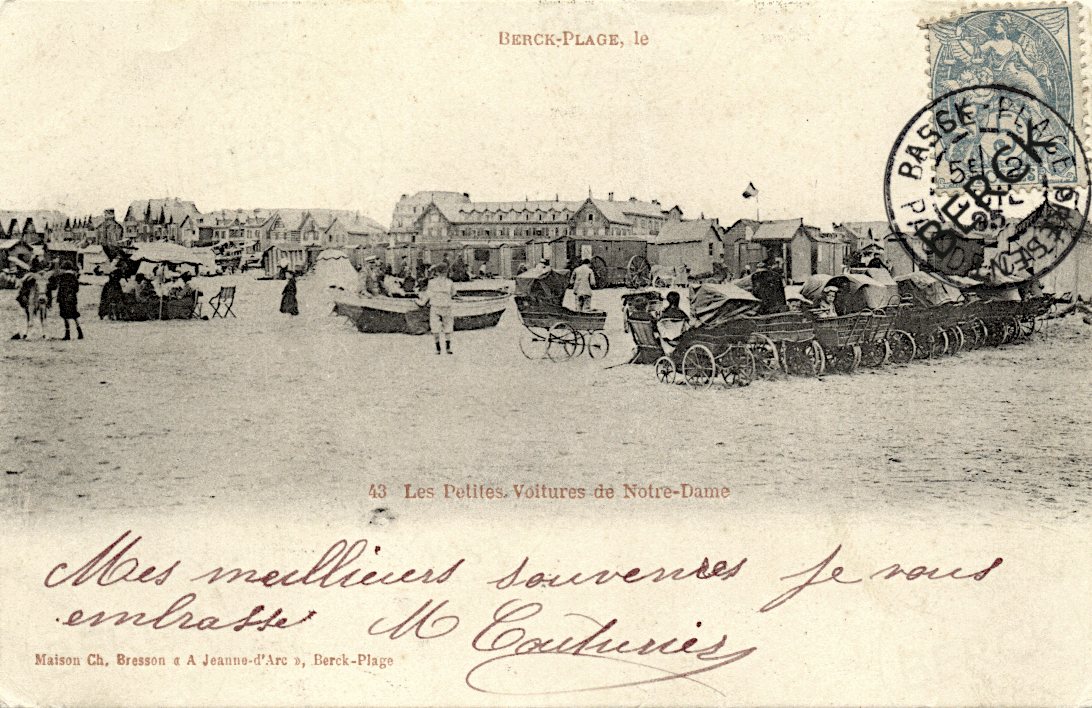 BERCK-PLAGE, le
BERCK
43 Les Petites Voitures de Notre-Dame
Mes meilleurs souvenirs je vous
embrasse M Couturier
Maison Ch. Bresson « A Jeanne-d'Arc », Berck-Plage